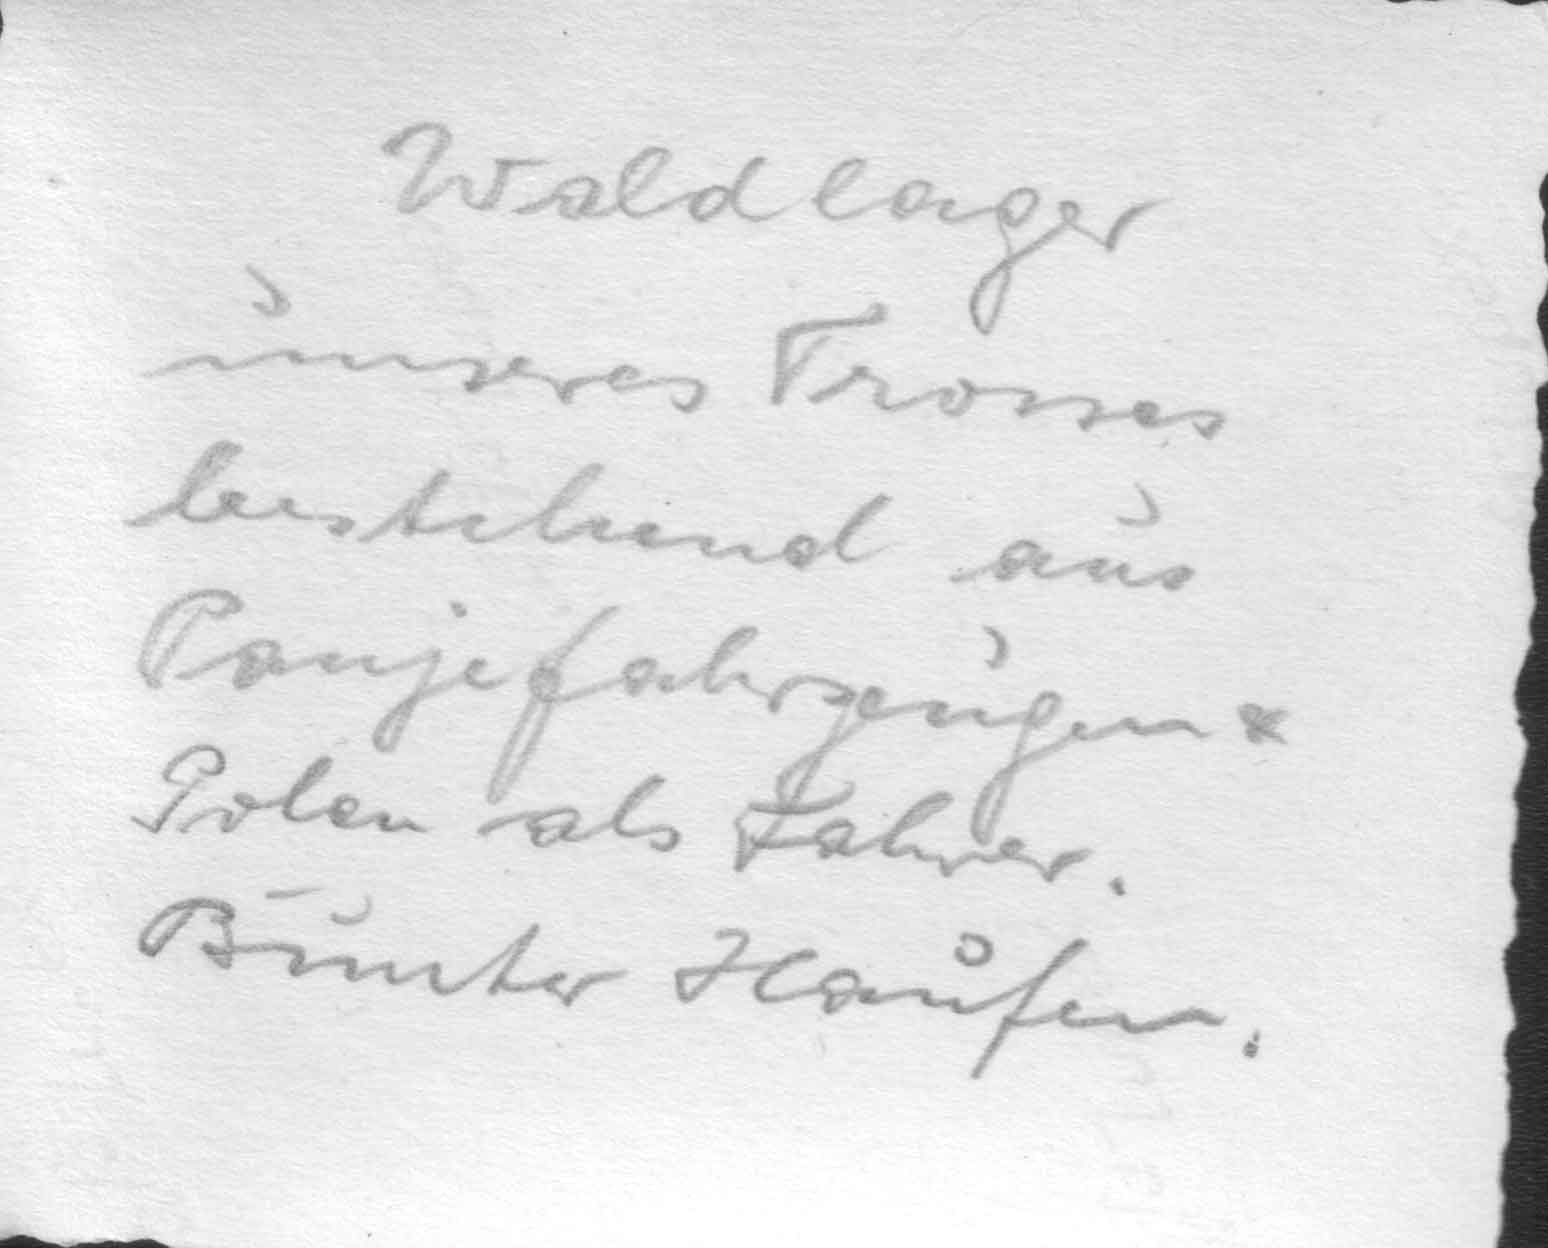 Waldlager
unseres Trosses
bestehend aus
Panjefahrzeugen &
Polen als Fahrer.
Bunter Haufen.